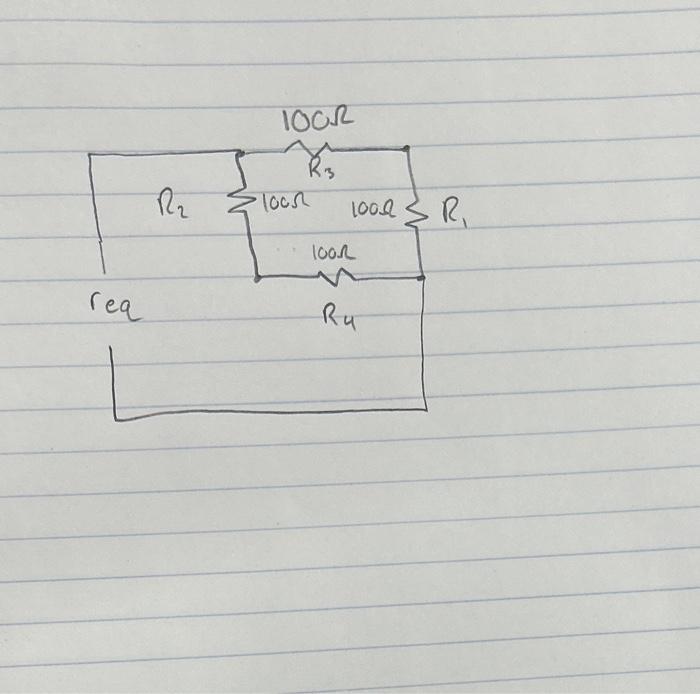 100Ω
R3
R2
100Ω
100Ω
R1
100Ω
req
R4